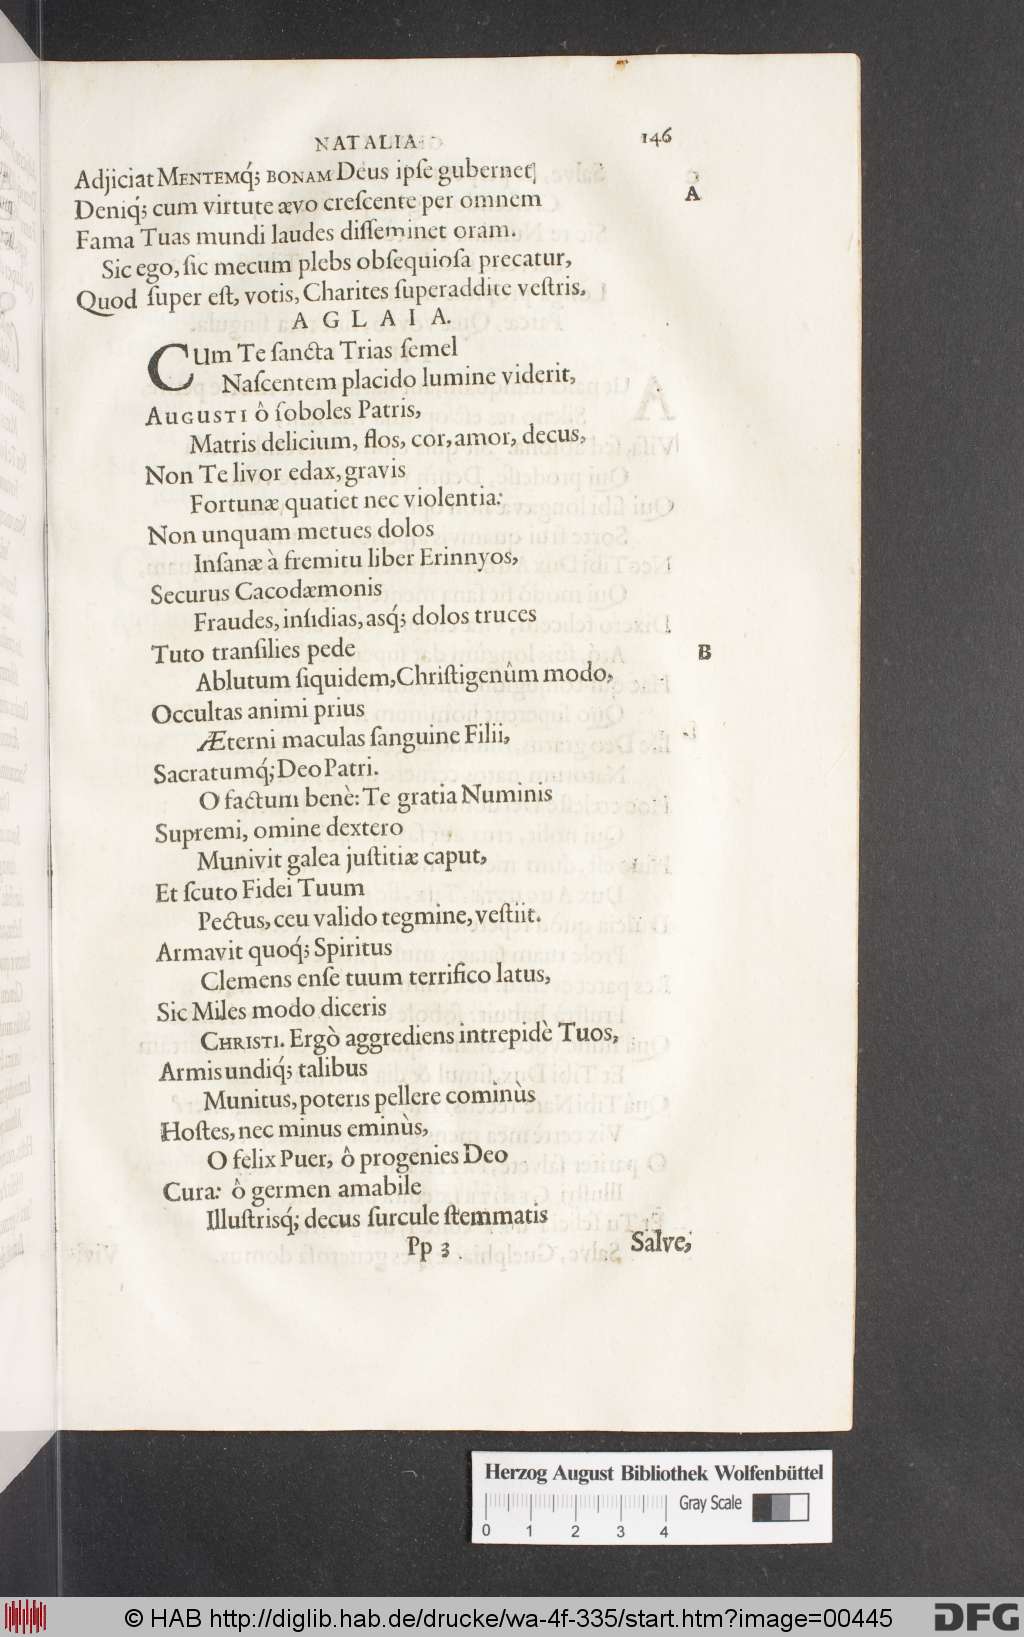 NATALIA 146
Adjiciat MENTEMq́; BONAM Deus ipſe gubernet;
A
Deniq́; cum virtute ævo creſcente per omnem
Fama Tuas mundi laudes diſſeminet oram.
Sic ego, ſic mecum plebs obſequioſa precatur,
Quod ſuper eſt, votis, Charites ſuperaddite veſtris.
AGLAIA.
CUm Te ſancta Trias ſemel
Naſcentem placido lumine viderit,
AUGUSTI ô ſoboles Patris,
Matris delicium, flos, cor, amor, decus,
Non Te livor edax, gravis
Fortunæ quatiet nec violentia:
Non unquam metues dolos
Inſanæ à fremitu liber Erinnyos,
Securus Cacodæmonis
Fraudes, inſidias, aſq́; dolos truces
Tuto tranſilies pede
B
Ablutum ſiquidem, Chriſtigenûm modo,
Occultas animi prius
Æterni maculas ſanguine Filii,
Sacratumq́; Deo Patri.
O factum benè: Te gratia Numinis
Supremi, omine dextero
Munivit galea juſtitiæ caput,
Et ſcuto Fidei Tuum
Pectus, ceu valido tegmine, veſtiit.
Armavit quoq́; Spiritus
Clemens enſe tuum terrifico latus,
Sic Miles modo diceris
CHRISTI. Ergò aggrediens intrepidè Tuos,
Armis undiq́; talibus
Munitus, poteris pellere cominùs
Hoſtes, nec minus eminùs,
O felix Puer, ô progenies Deo
Cura: ô germen amabile
Illuſtrisq́; decus ſurcule ſtemmatis
Pp 3 Salve,
Herzog August Bibliothek Wolfenbüttel
Gray Scale
0 1 2 3 4
© HAB http://diglib.hab.de/drucke/wa-4f-335/start.htm?image=00445
DFG